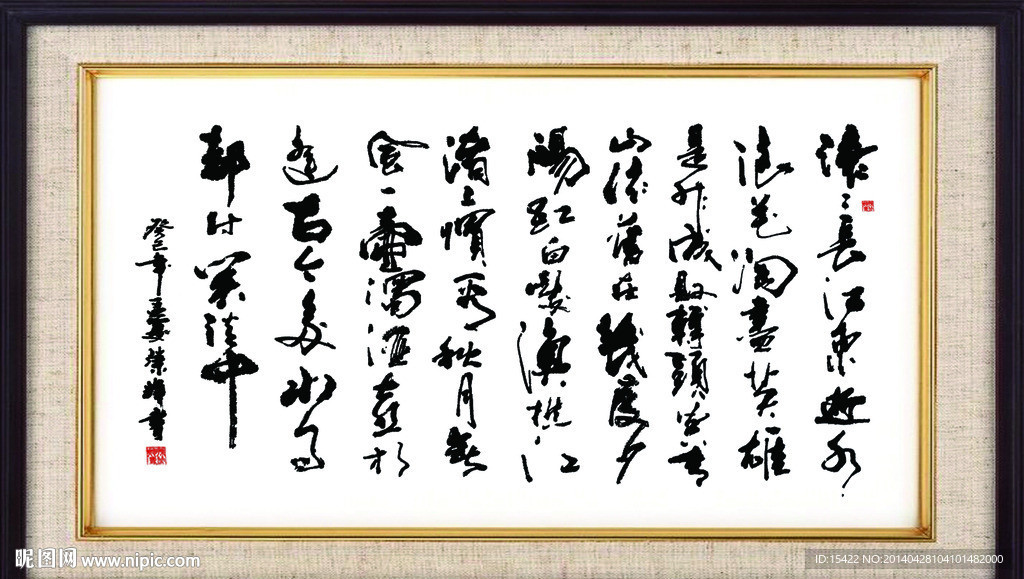 滚滚長江東逝水
浪花淘盡英雄
是非成敗轉頭空青
山依舊在幾度夕
陽紅白髮漁樵江
渚上慣看秋月春
風一壺濁酒喜相
逢古今多少事
都付笑談中
癸巳年孟夏書
昵图网 www.nipic.com
ID:15422 NO:20140428104101482000